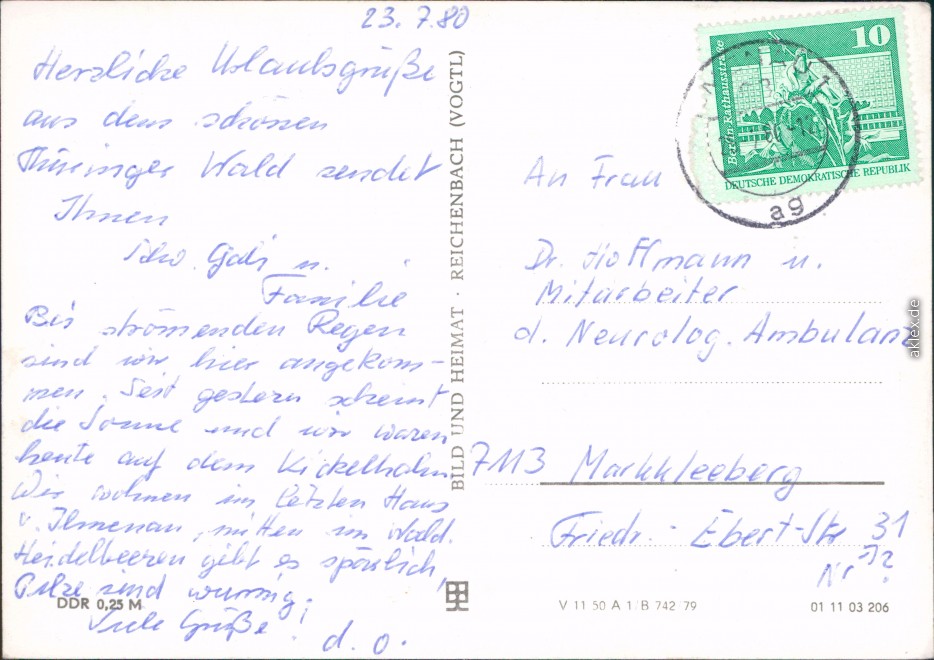 23.7.80
Herzliche Urlaubsgrüße
aus dem schönen
Thüringer Wald sendet
Ihnen
Gabi u.
Familie
Bei strömenden Regen
sind wir hier angekom-
men. Seit gestern scheint
die Sonne und wir waren
heute auf dem Kickelhahn
Wir wohnen im letzten Haus
v. Ilmenau, mitten im Wald.
Heidelbeeren gibt es spärlich,
Pilze sind wurmig.
Viele Grüße!
d. O.
DDR 0,25 M
BILD UND HEIMAT · REICHENBACH (VOGTL)
10
Berlin · Rathausstraße
DEUTSCHE DEMOKRATISCHE REPUBLIK
ag
An Frau
Dr. Hoffmann u.
Mitarbeiter
d. Neurolog. Ambulanz
7113 Markkleeberg
Friedr.-Ebert-Str 31
Nr ?
V 11 50 A 1/B 742 79
01 11 03 206
aklex.de